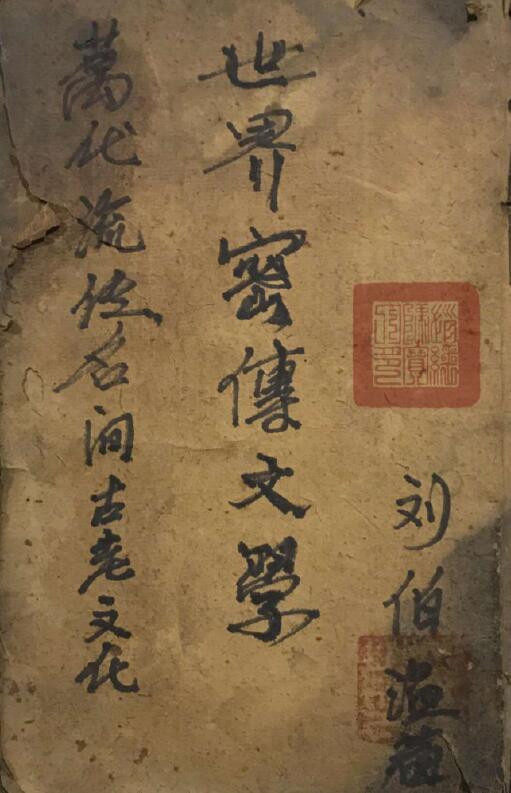 刘伯温
世界密傳文學
萬代流传名间古老文化